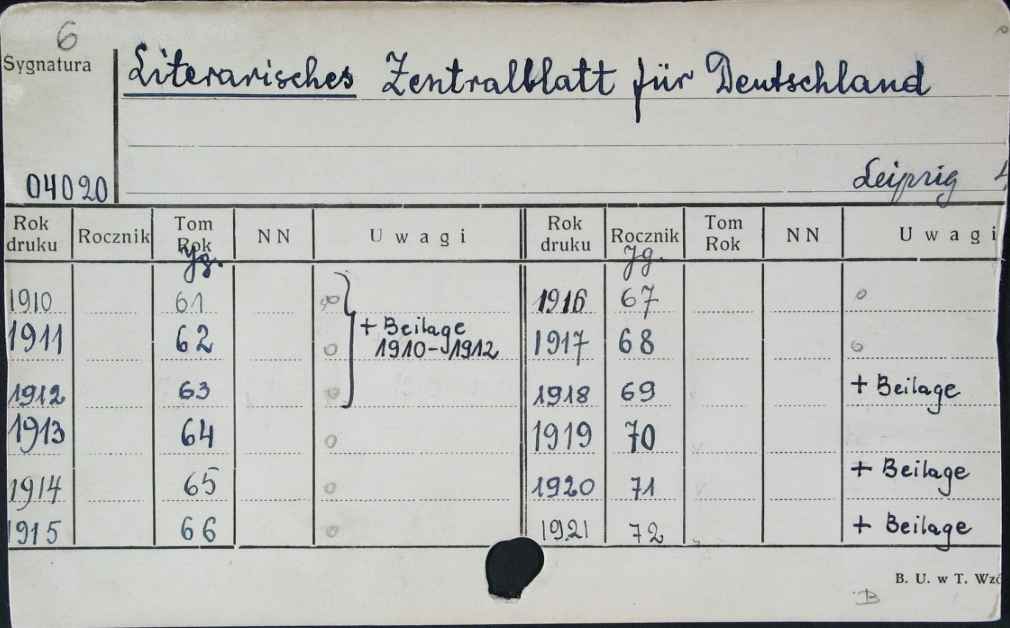 6
Sygnatura
Literarisches Zentralblatt für Deutschland
04020
Leipzig
Rok druku Rocznik Tom Rok NN Uwagi Rok druku Rocznik Tom Rok NN Uwagi
Jg. Jg.
1910 61 1916 67
+ Beilage
1911 62 1910-1912 1917 68
1912 63 1918 69 + Beilage
1913 64 1919 70
1914 65 1920 71 + Beilage
1915 66 1921 72 + Beilage
B. U. w T.
B